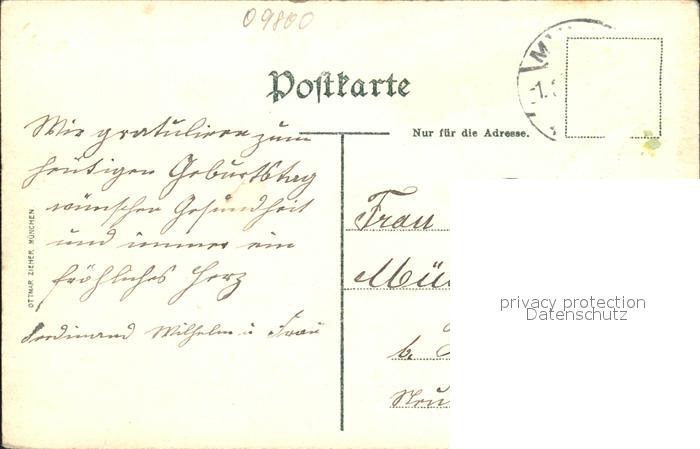 09800
Postkarte
M
1.
Nur für die Adresse.
Wir gratulieren zum
heutigen Geburtstag
wünschen Gesundheit
und immer ein
fröhliches Herz
Ferdinand Wilhelm u Frau
OTTMAR ZIEHER MÜNCHEN
Frau
Mün
b.
Neu
privacy protection
Datenschutz